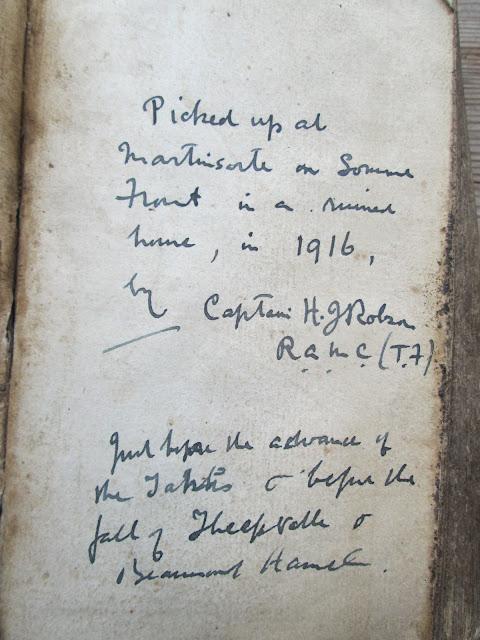 Picked up at
Martinsarte on Somme
Front in a ruined
house, in 1916,
by
Captain H. J Robson
R. A. M. C. (T.F)
Just before the advance of
the & before the
fall of Thiepvalle &
Beaumont Hamel.